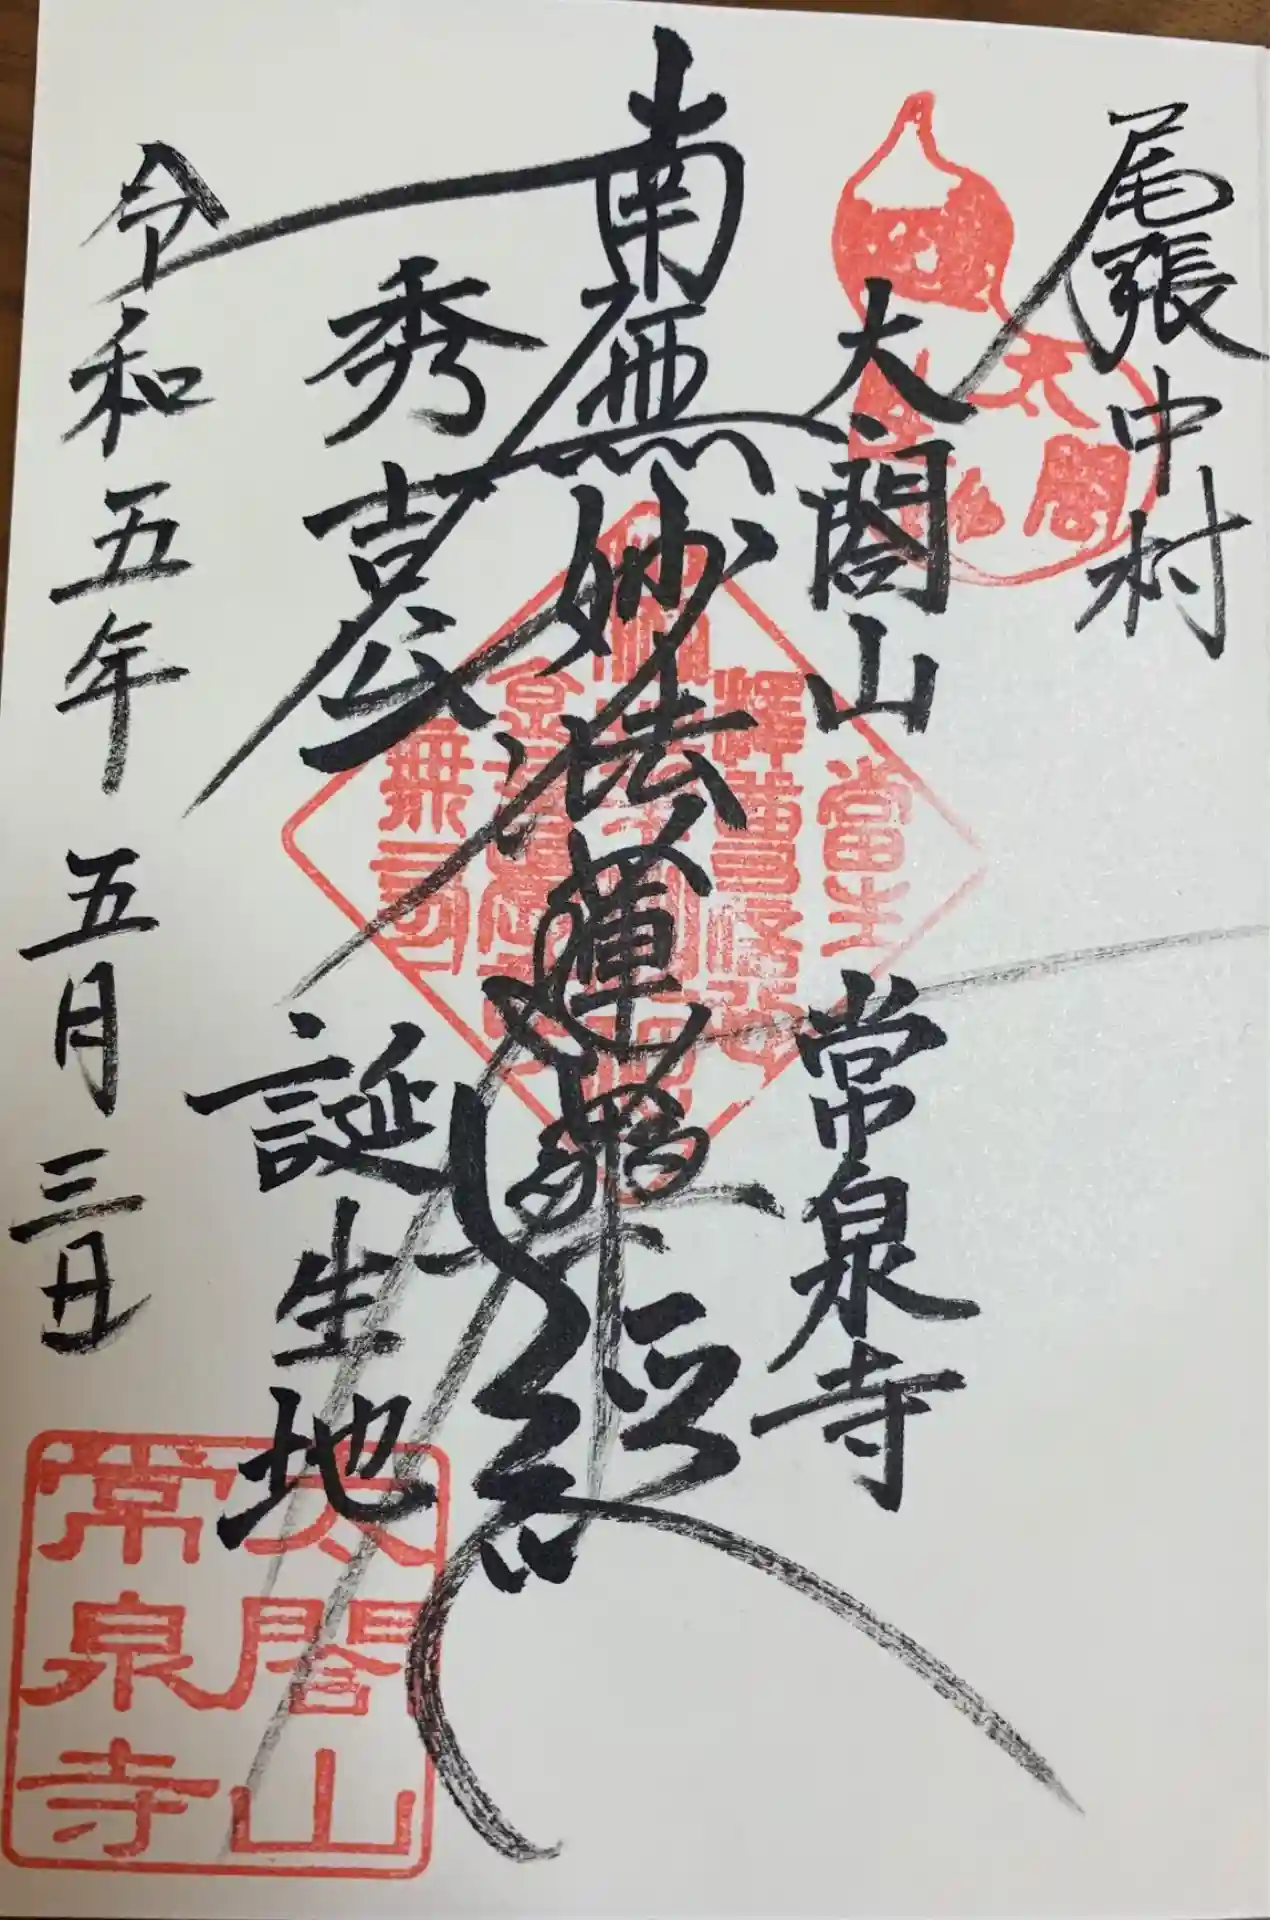 尾張中村
太閤山 常泉寺
南無妙法蓮華経
秀吉公 誕生地
令和五年 五月三日
太閤
太閤山
常泉寺